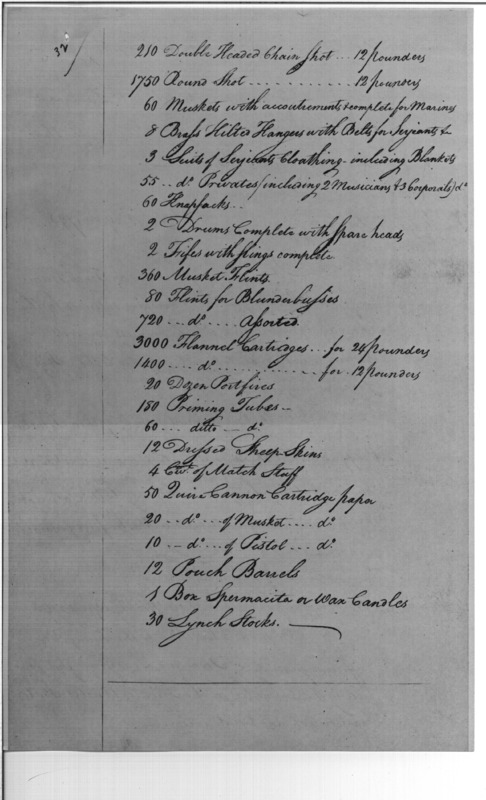 32
210 Double Headed Chain Shot ... 12 pounders
1750 Round Shot ............ 12 pounders
60 Muskets with accoutrements complete for Marines
8 Brass Hilted Hangers with Belts for Serjeants &
3 Suits of Serjeants Cloathing - including Blankets
55 .. do. Privates (including 2 Musicians & 3 Corporals) do.
60 Knapsacks ..
2 Drums Complete with spare heads
2 Fifes with slings complete
360 Musket Flints.
80 Flints for Blunderbusses
720 ... do. .... Assorted
3000 Flannel Cartridges ... for 24 pounders
1400 .... do. ............ for 12 pounders
20 Dozen Portfires
180 Priming Tubes --
60 ... ditto -- do.
12 Dressed Sheep Skins
4 Cwt. of Match Stuff
50 Quire Cannon Cartridge paper
20 .. do. ... of Musket .... do.
10 .. do. ... of Pistol ... do.
12 Pouch Barrels
1 Box Spermacita or Wax Candles
30 Lynch Stocks. --